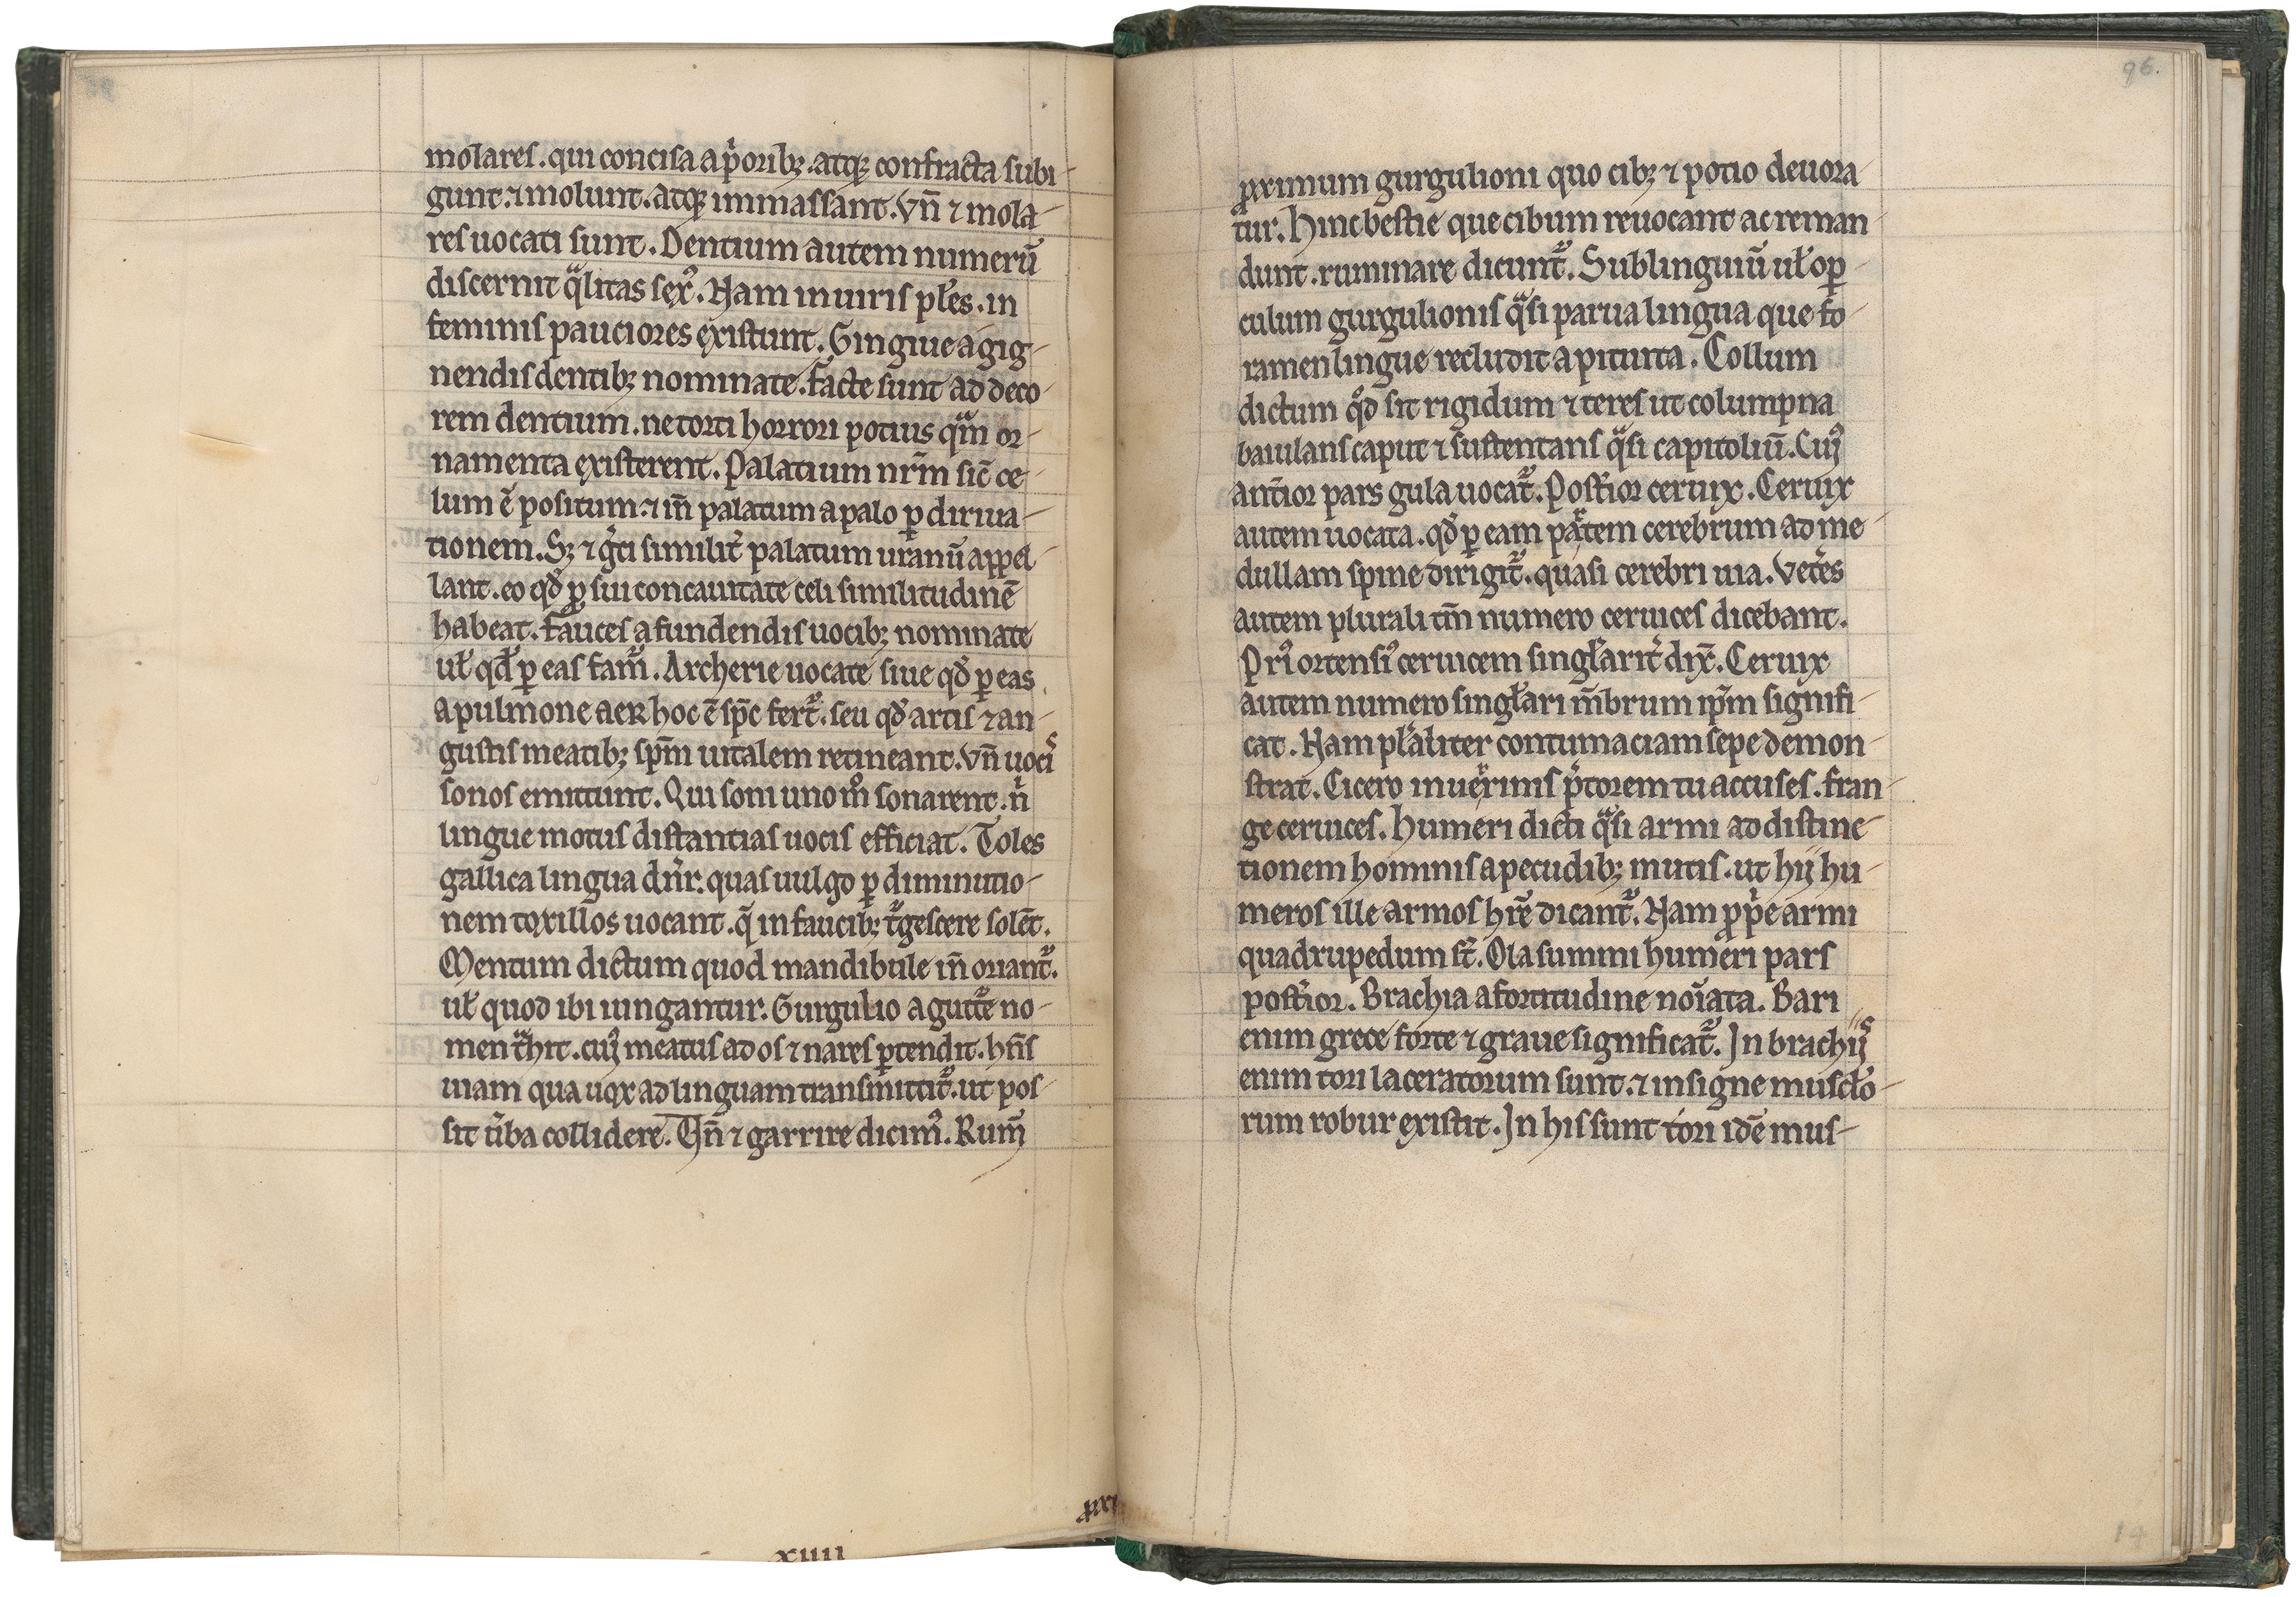 molares. qui concisa a p̾orib; atq; confracta subi-
gunt. ⁊ molunt. atq; immassant. Vn̄ ⁊ mola-
res uocati sunt. Dentium autem numerū
discernit q̈litas sex᷒. Nam in uiris pl̄es. in
feminis pauciores existunt. Gingiue a gig-
nendis dentib; nominate. facte sunt ad deco-
rem dentium. ne torti horrori potius qᷓm or-
namenta existerent. Palatium nr̄m sic̄ ce-
lum ē positum. ⁊ in̄ palatum a palo ꝑ diriua-
tionem. S; ⁊ gͥci similit̾ palatum uranū appel-
lant. eo qd̾ ꝑ sui concauitate celi similitudinē
habeat. Fauces a fundendis uocib; nominate
ul̄ qd̾ ꝑ eas fam᷑. Archerie uocate siue qd̾ ꝑ eas
a pulmone aer hoc ē sp̄c fert᷑. seu qd̾ artis ⁊ an-
gustis meatib; sp̄m uitalem retineant. Vn̄ uociˢ
sonos emittunt. Qui soni uno mͦ sonarent. nͥ
lingue motus distantias uocis efficiat. Toles
gallica lingua dn̄r. quas uulgo ꝑ diminutio-
nem toxillos uocant. q̄ in faucib; t᷑gescere solēt.
Mentum dictum quod mandibule in̄ oriant᷑.
ul̄ quod ibi iungantur. Gurgulio a gutt᷑e no-
men tᷓhit. cuꝰ meatus ad os ⁊ nares ꝓtendit. hn̄s
uiam qua uox ad linguam transmittit᷑. ut pos-
sit ůba collidere. Vn̄ ⁊ garrire dicimꝰ. Rum̄
xiiii
ꝓxi
96.
ꝓximum gurgulioni quo cib; ⁊ potio deuora
tur. Hinc bestie que cibum reuocant ac reman-
dunt. ruminare dicunt᷑. Sublinguiū ul̄ oꝑ-
culum gurgulionis qᷓsi parua lingua que fo-
ramen lingue recludit apituita. Collum
dictum qd̾ sit rigidum ⁊ teres ut columpna
baiulans caput ⁊ sustentans qᷓsi capitoliū. Cuꝰ
ant̄ior pars gula uocat᷑. Post̾ior ceruix. Ceruix
autem uocata. qd̾ ꝑ eam pᷓtem cerebrum ad me-
dullam spine dirigit᷑. quasi cerebri uia. Vet̾es
autem plurali tm̄ numero ceruices dicebant.
Prīꝰ ortensiꝰ ceruicem singl̄arit̾ dix̄. Ceruix
autem numero singl̄ari m̄brum ip̄m signifi-
cat. Nam pl̄aliter contumaciam sepe demon-
strat. Cicero in uerrinis p̾torem tu accuses. fran-
ge ceruices. Humeri dicti qᷓsi armi ad distinc-
tionem hominis a pecudib; mutis. ut hij hu-
meros ille armos hr̄e dicant᷑. Nam ꝓpͥe armi
quadrupedum st̄. Ola summi humeri pars
post̾ior. Brachia a fortitudine noīata. Bari
enim grece forte ⁊ graue significat᷑. In brachijˢ
enim tori laceratorum sunt. ⁊ insigne muscl̄o-
rum robur existit. In his sunt tori idē mus-
14